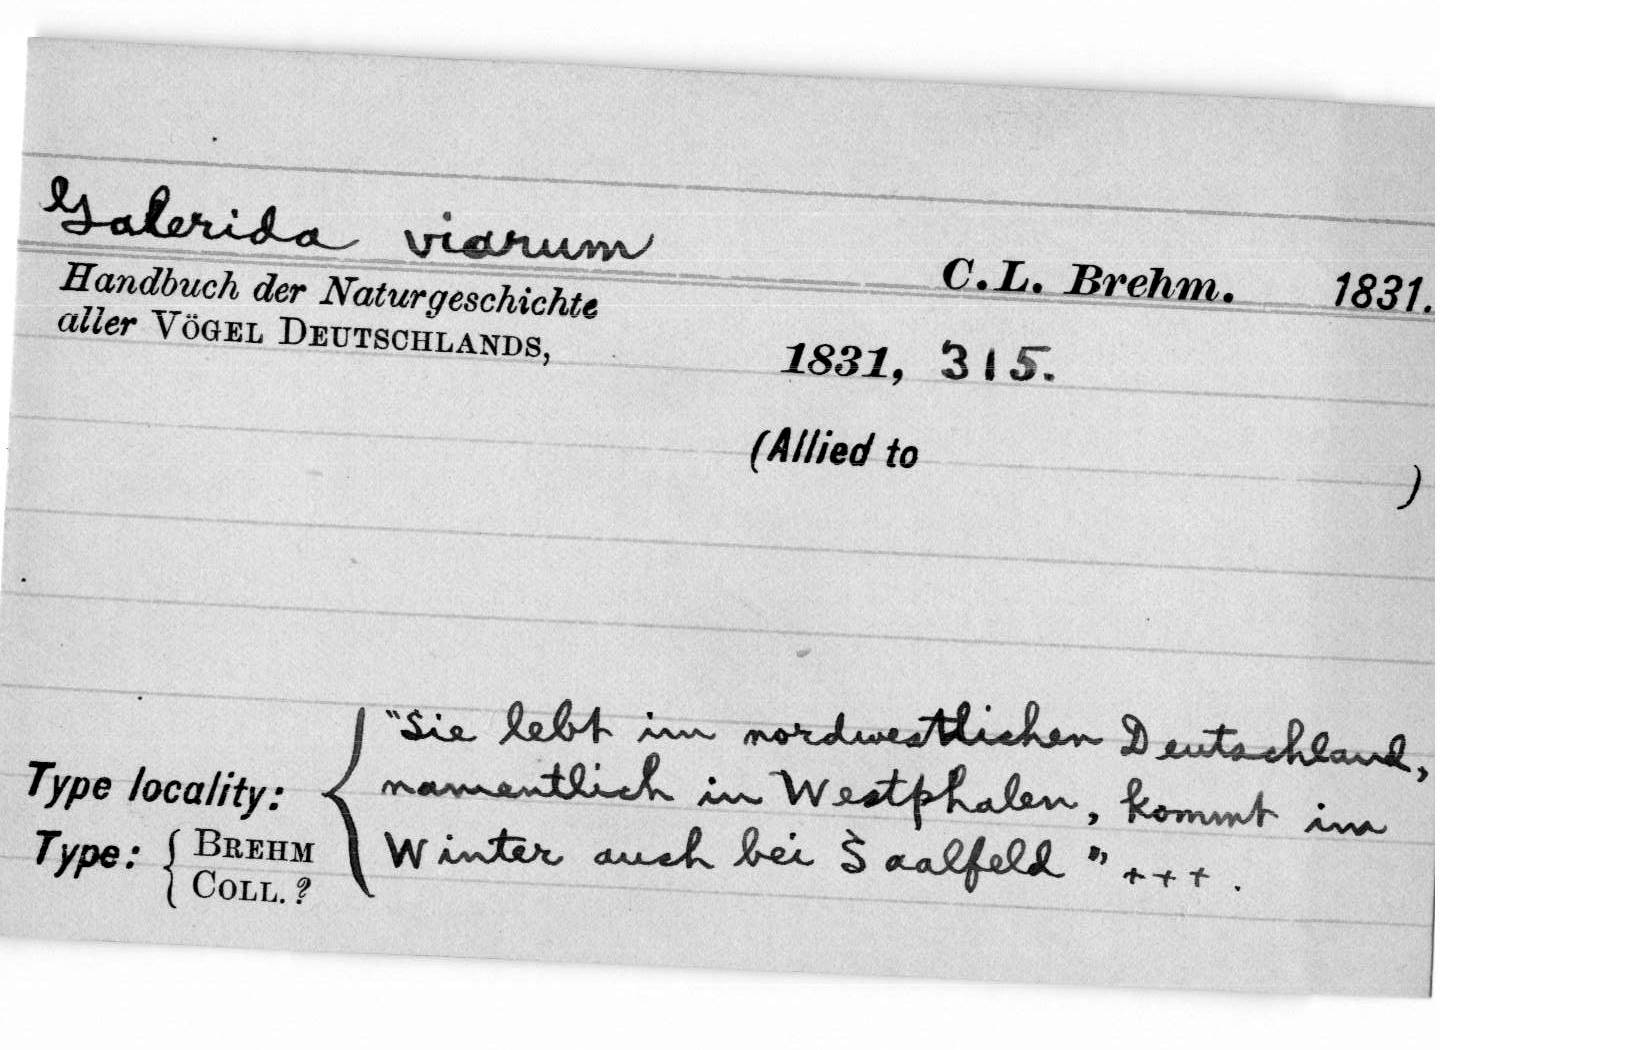 Galerida viarum
C.L. Brehm. 1831.
Handbuch der Naturgeschichte
aller VÖGEL DEUTSCHLANDS,
1831, 315.
(Allied to )
Type locality:
"Sie lebt im nordwestlichen Deutschland,
namentlich in Westphalen, kommt im
Winter auch bei Saalfeld" +++.
Type: { BREHM
COLL. ?